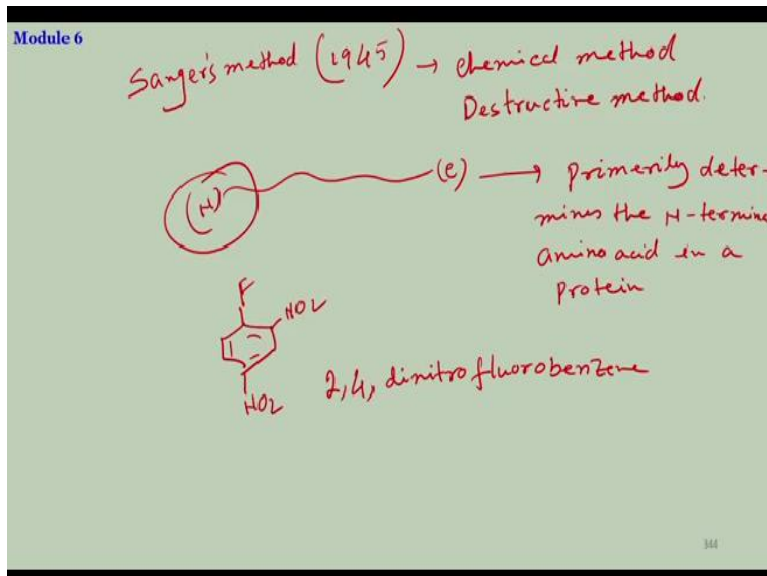 Module 6
Sanger's method (1945) → chemical method
Destructive method.
(N) (C) → primerily deter-
mines the N-termina
amino acid in a
protein
F
NO2
NO2 2,4, dinitrofluorobenzene
344